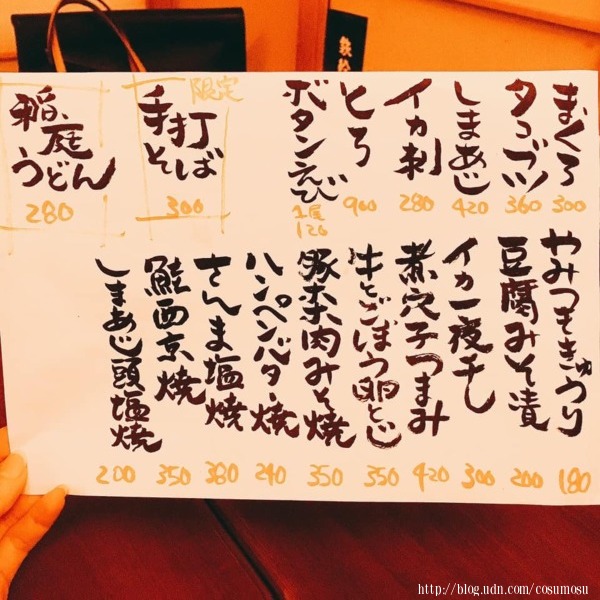 まぐろ
300
タコブツ
360
しまあじ
420
イカ刺
280
とろ
900
ボタンえび
1尾
120
限定
手打
そば
300
稲庭
うどん
280
やみつききゅうり
180
豆腐みそ漬
200
イカ一夜干し
300
煮穴子つまみ
420
牛とごぼう卵とじ
350
豚ホホ肉みそ焼
350
ハンペンバター焼
240
さんま塩焼
380
鮭西京焼
350
しまあじ頭塩焼
200
http://blog.udn.com/cosumosu